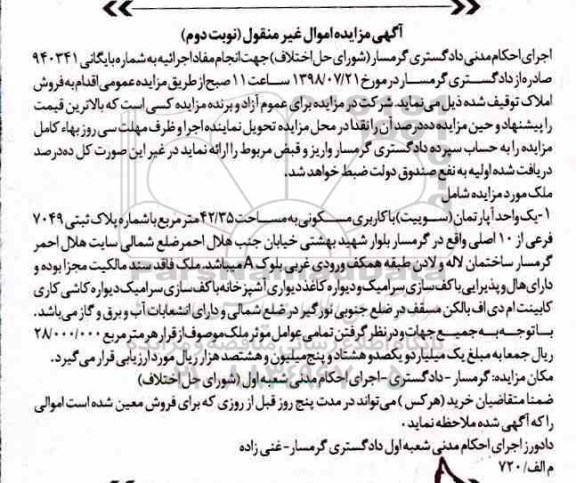 آگهی مزایده اموال غیر منقول (نوبت دوم)
اجرای احکام مدنی دادگستری گرمسار (شورای حل اختلاف) جهت انجام مفاد اجرائیه به شماره بایگانی ۹۴۰۳۴۱
صادره از دادگستری گرمسار در مورخ ۱۳۹۸/۰۷/۲۱ ساعت ۱۱ صبح از طریق مزایده عمومی اقدام به فروش
املاک توقیف شده ذیل می نماید. شرکت در مزایده برای عموم آزاد و برنده مزایده کسی است که بالاترین قیمت
را پیشنهاد و حین مزایده ده درصد آن را نقدا در محل مزایده تحویل نماینده اجرا و ظرف مهلت سی روز بهاء کامل
مزایده را به حساب سپرده دادگستری گرمسار واریز و قبض مربوط را ارائه نماید در غیر این صورت کل ده درصد
دریافت شده اولیه به نفع صندوق دولت ضبط خواهد شد.
ملک مورد مزایده شامل
۱- یک واحد آپارتمان (سوییت) با کاربری مسکونی به مساحت ۴۲/۳۵ متر مربع با شماره پلاک ثبتی ۷۰۴۹
فرعی از ۱۰ اصلی واقع در گرمسار بلوار شهید بهشتی خیابان جنب هلال احمر ضلع شمالی سایت هلال احمر
گرمسار ساختمان لاله و لادن طبقه همکف ورودی غربی بلوک A میباشد. ملک فاقد سند مالکیت مجزا بوده و
دارای هال و پذیرایی با کف سازی سرامیک و دیواره کاغذ دیواری آشپزخانه با کف سازی سرامیک دیواره کاشی کاری
کابینت ام دی اف بالکن مسقف در ضلع جنوبی نورگیر در ضلع شمالی و دارای انشعابات آب و برق و گاز می باشد.
با توجه به جمیع جهات و در نظر گرفتن تمامی عوامل موثر ملک موصوف از قرار هر متر مربع ۲۸/۰۰۰/۰۰۰
ریال جمعا به مبلغ یک میلیارد و یکصد و هشتاد و پنج میلیون و هشتصد هزار ریال مورد ارزیابی قرار می گیرد.
مکان مزایده: گرمسار - دادگستری - اجرای احکام مدنی شعبه اول (شورای حل اختلاف)
ضمنا متقاضیان خرید (هر کس) می تواند در مدت پنج روز قبل از روزی که برای فروش معین شده است اموالی
را که آگهی شده ملاحظه نماید.
دادورز اجرای احکام مدنی شعبه اول دادگستری گرمسار - غنی زاده
م الف/ ۷۲۰